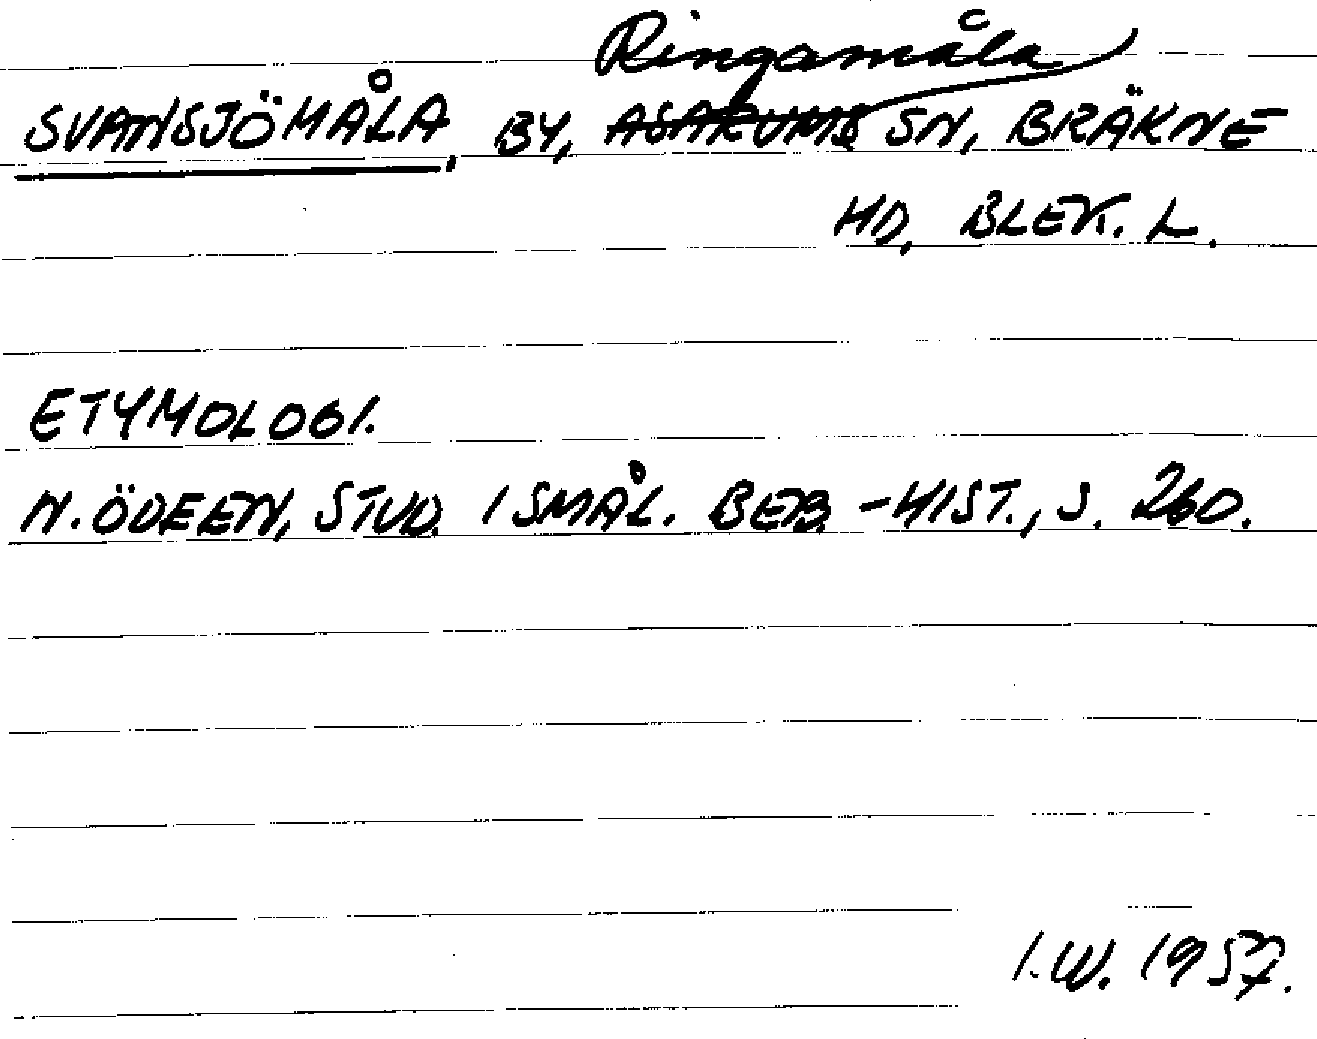 Ringamåla
SVANSJÖMÅLA, BY, ASARUMS SN, BRÄKNE
HD, BLEK. L.
ETYMOLOGI.
N. ÖDEEN, STUD. I SMÅL. BEB.-HIST., S. 260.
I.W. 1957.